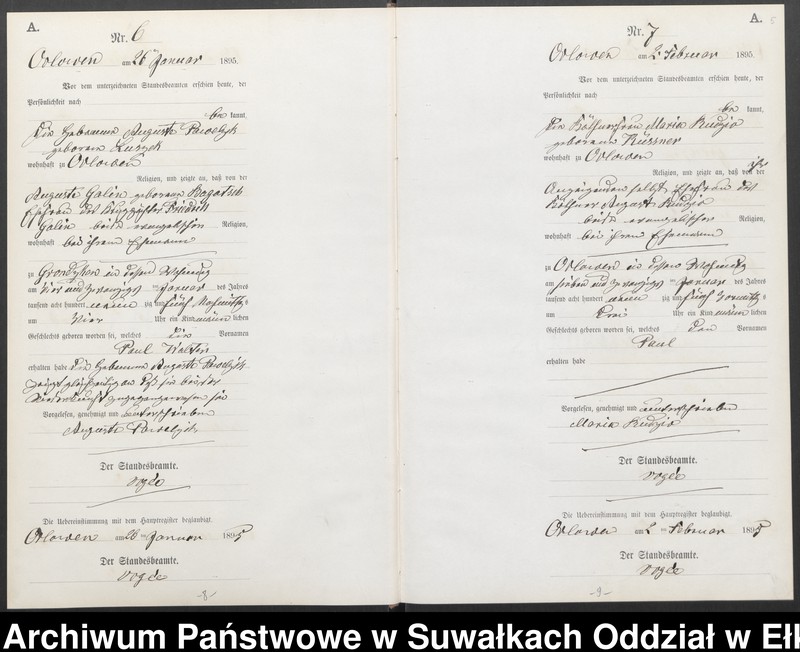 A.
Nr. 6
Orlowen am 26 Januar 1895.
Vor dem unterzeichneten Standesbeamten erschien heute, der
Persönlichkeit nach
be kannt,
die Hebamme Auguste
geborene
wohnhaft zu Orlowen
Religion, und zeigte an, daß von der
Auguste Galin geborene
Ehefrau des Friedrich
Galin beide evangelischer Religion,
wohnhaft bei ihrem Ehemann
zu in dessen Wohnung
am vier und zwanzigsten Januar des Jahres
tausend acht hundert neun zig und fünf Nachmittags
um vier Uhr ein Kind männlichen
Geschlechts geboren worden sei, welches die Vornamen
Paul Walter
erhalten habe die Hebamme Auguste
zeigt gleichzeitig an daß sie bei der
Niederkunft zugegen gewesen sei
Vorgelesen, genehmigt und unterschrieben
Auguste
Der Standesbeamte.
Vogée
Die Uebereinstimmung mit dem Hauptregister beglaubigt.
Orlowen am 26 ten Januar 1895
Der Standesbeamte.
Vogée
-8-
A.
5
Nr. 7
Orlowen am 2 Februar 1895.
Vor dem unterzeichneten Standesbeamten erschien heute, der
Persönlichkeit nach
be kannt,
die Käthnerfrau Maria Rudzio
geborene Küssner
wohnhaft zu Orlowen
Religion, und zeigte an, daß von ihr der
Anzeigenden selbst Ehefrau des
Käthner August Rudzio
beide evangelischer Religion,
wohnhaft bei ihrem Ehemann
zu Orlowen in dessen Wohnung
am sieben und zwanzigsten Januar des Jahres
tausend acht hundert neun zig und fünf Vormittags
um drei Uhr ein Kind männlichen
Geschlechts geboren worden sei, welches den Vornamen
Paul
erhalten habe
Vorgelesen, genehmigt und unterschrieben
Maria Rudzio
Der Standesbeamte.
Vogée
Die Uebereinstimmung mit dem Hauptregister beglaubigt.
Orlowen am 2 ten Februar 1895
Der Standesbeamte.
Vogée
-9-
Archiwum Państwowe w Suwałkach Oddział w Ełk